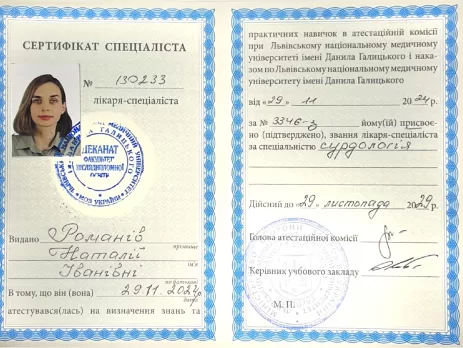 СЕРТИФІКАТ СПЕЦІАЛІСТА
№ 130233
лікаря-спеціаліста
ДЕКАНАТ
ФАКУЛЬТЕТ
ПІСЛЯДИПЛОМНОЇ
ОСВІТИ
Видано Романів
прізвище
Наталії
ім'я
Іванівні
по батькові
В тому, що він (вона) 29.11.2024р
дата
атестувався(лась) на визначення знань та
практичних навичок в атестаційній комісії
при Львівському національному медичному
університеті імені Данила Галицького і нака-
зом по Львівському національному медичному
університету імені Данила Галицького
від «29» 11 2024 р.
за № 3346-з йому(їй) присвоє-
но (підтверджено), звання лікаря-спеціаліста
за спеціальністю сурдологія
Дійсний до 29. листопада 2029 р.
Голова атестаційної комісії
Керівник учбового закладу
М. П.